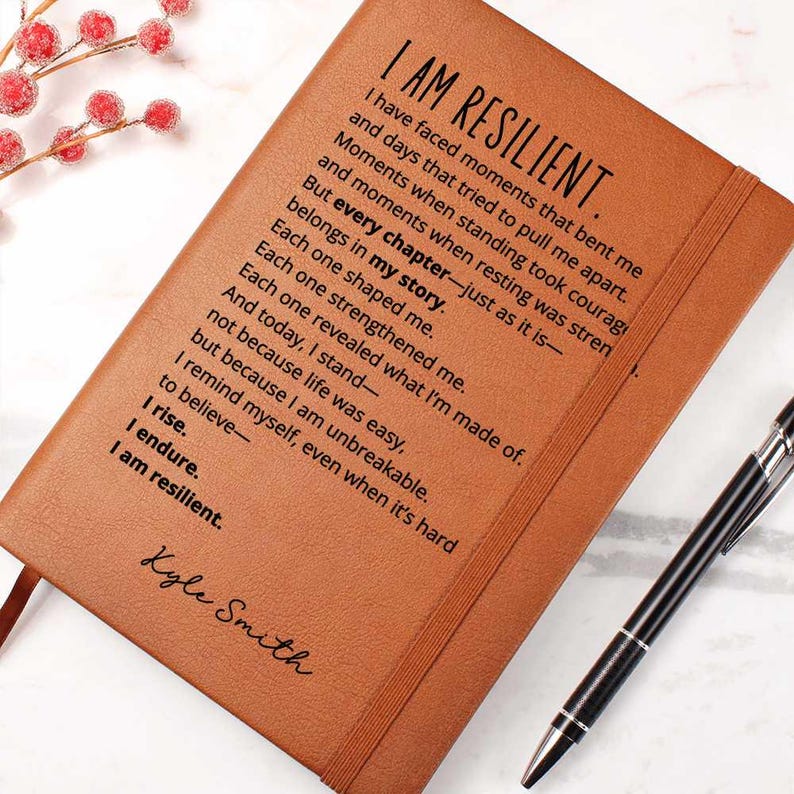 I AM RESILIENT.
I have faced moments that bent me
and days that tried to pull me apart.
Moments when standing took courage
and moments when resting was strength.
But every chapter—just as it is—
belongs in my story.
Each one shaped me.
Each one strengthened me.
Each one revealed what I'm made of.
And today, I stand—
not because life was easy,
but because I am unbreakable.
I remind myself, even when it's hard
to believe—
I rise.
I endure.
I am resilient.
Kyle Smith